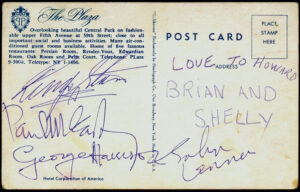 The Plaza
Overlooking beautiful Central Park on fashion-
able upper Fifth Avenue at 59th Street; close to all
important social and business activities. Many air-con-
ditioned guest rooms available. House of five famous
restaurants: Persian Room, Rendez-Vous, Edwardian
Room, Oak Room and Palm Court. Telephone: PLaza
9-3000. Teletype: NY 1-
Paul McCartney
George Harrison
Hotel Corporation of America
POST CARD
ADDRESS
PLACE
STAMP
HERE
LOVE TO HOWARD
BRIAN AND
SHELLY
John
Lennon